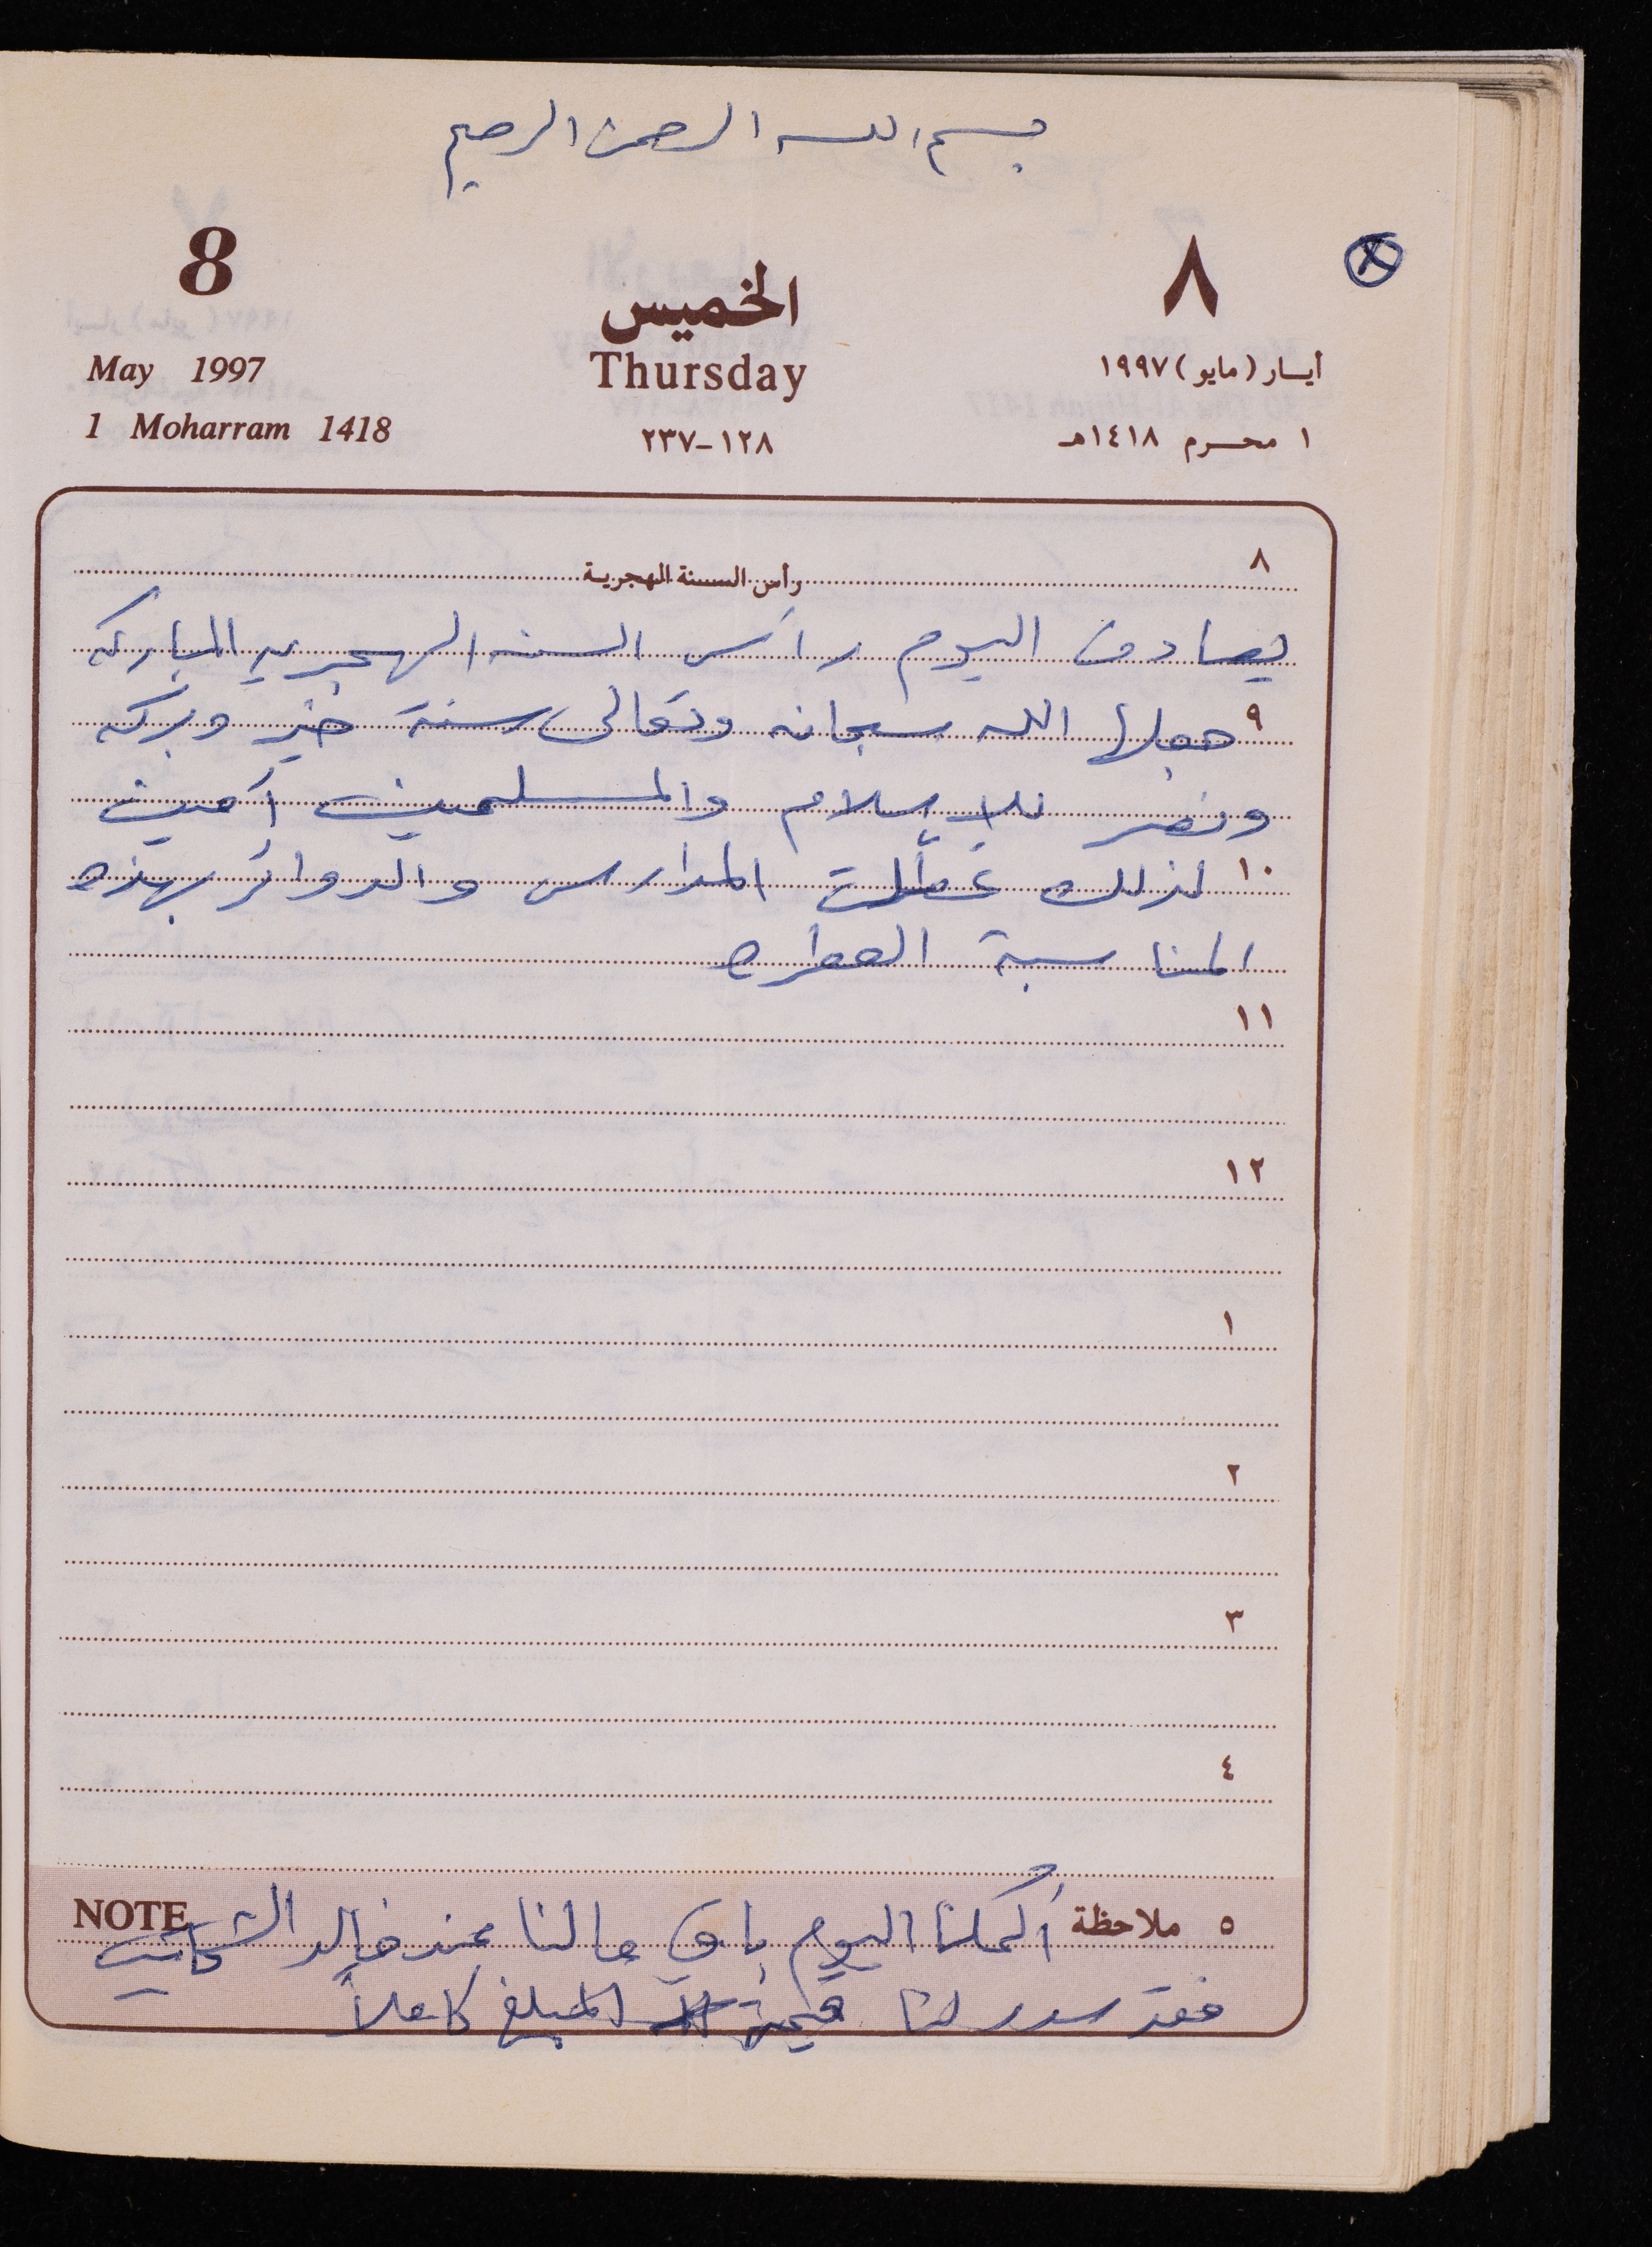 بسم الله الرحمن الرحيم
8 ٨
الخميس
May 1997 Thursday أيسار (مايو) ١٩٩٧
1 Moharram 1418 ٢٣٧-١٢٨ ١ محرم ١٤١٨هـ
٨
رأس السنة الهجرية
يصادف اليوم رأس السنه الهجريه المباركه
٩ جعلها الله سبحانه وتعالى سنة خير وبركه
ونصر للإسلام والمسلمين آمين
١٠ لذلك عطلت المدارس والدوائر بهذه
المناسبة العطره
١١
١٢
١
٢
٣
٤
٥ ملاحظة أكملنا اليوم باقي مالنا عند خالد NOTE
فقد سدد لنا قيمة المبلغ كاملاً